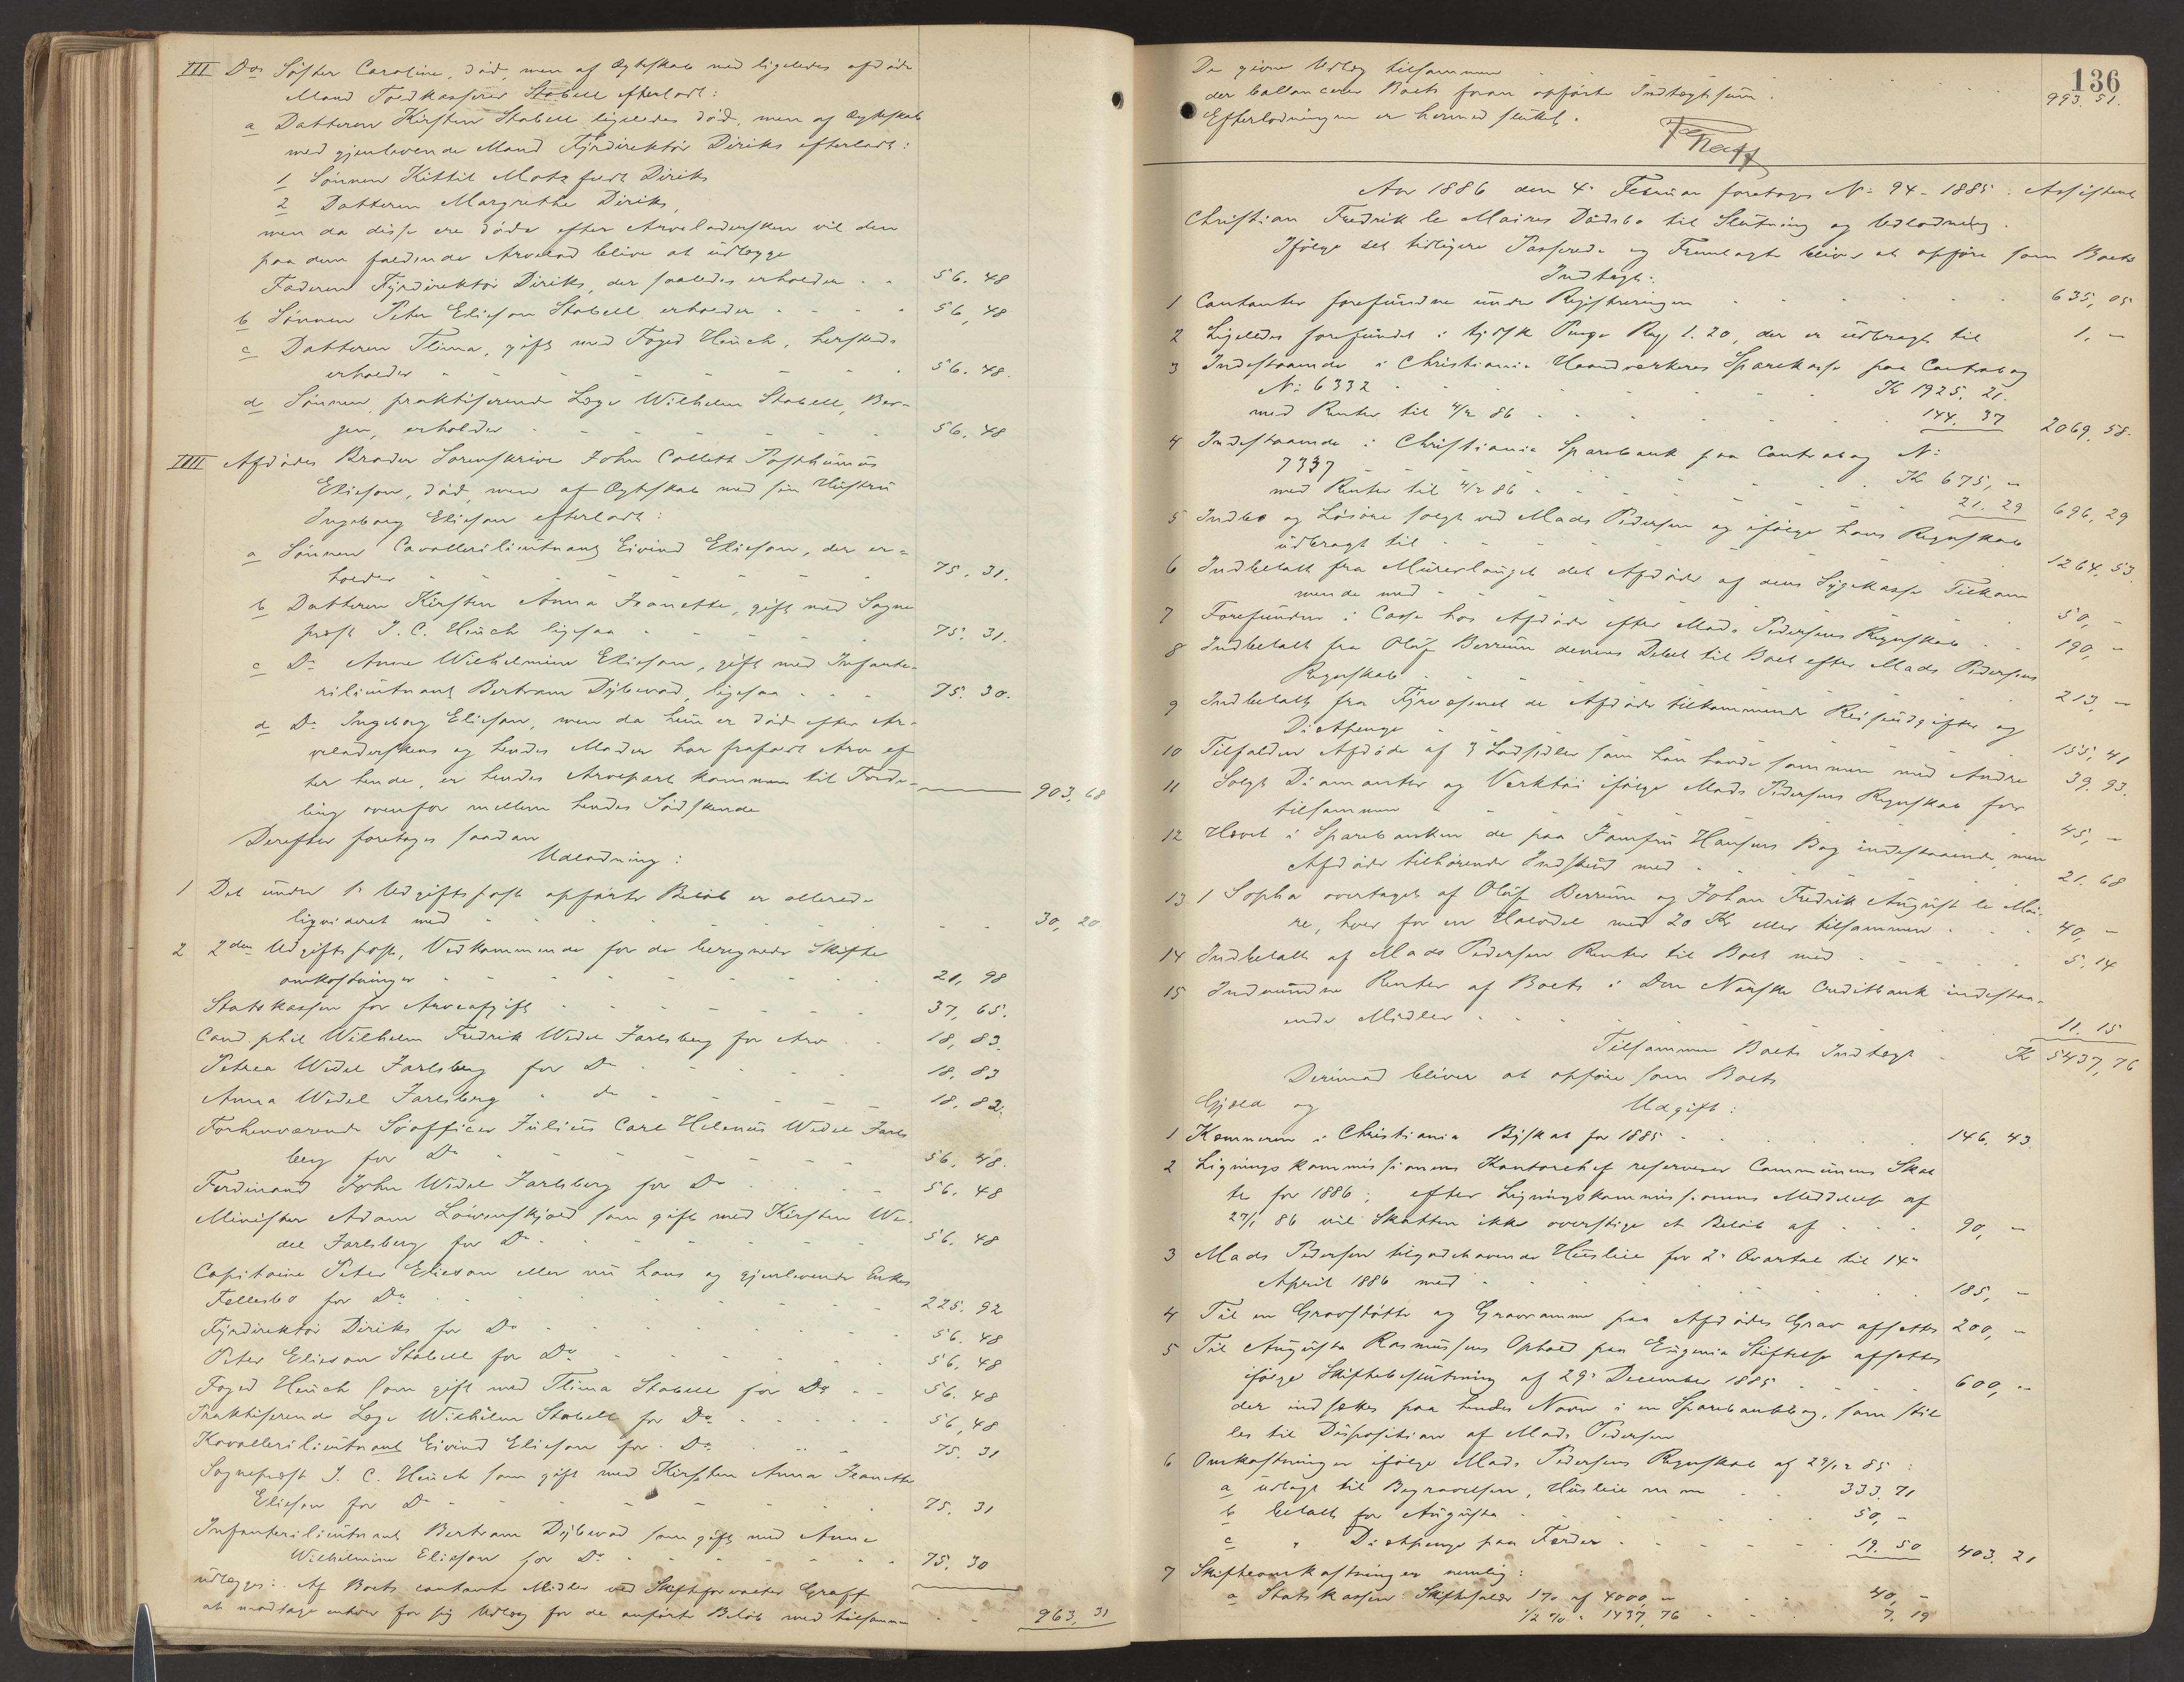 III Dos Søster Caroline, død, men af Ægteskab med ligeledes afdøde
Mand Toldkasserer Stabell efterladt:
a Datteren Kirsten Stabell ligeledes død, men af Ægteskab
med gjenlevende Mand Fyrdirektør Diriks efterladt:
1 Sønnen Kittil Motzfeldt Diriks
2 Datteren Margrethe Diriks,
men da disse ere døde efter Arveladersken vil den
paa dem faldende Arvelod blive at udlægge
Faderen Fyrdirektør Diriks, der saaledes erholder . . 56. 48
b Sønnen Peter Elieson Stabell erholder . . . . 56, 48
c Datteren Thina, gift med Foged Heuch, hersteds
erholder - - - - - - - 56. 48.
d Sønnen praktiserende Læge Wilhelm Stabell, Ber-
gen, erholder - - - - - - 56. 48
IIII Afdødes Broder Sorenskriver John Collett Posthumus
Elieson, død, men af Ægteskab med sin Hustru
Ingeborg Elieson efterladt:
a Sønnen Cavallerilieutnant Eivind Elieson, der er=
holder - - - - - - - - 75. 31.
b Datteren Kirsten Anna Jeanette, gift med Sogne
præst J. C. Heuch ligesaa - - - - - 75. 31.
c Do Anne Wilhelmine Elieson, gift med Infante-
rilieutnant Bertram Dybwad, ligesaa - - - 75. 30.
d Do Ingeborg Elieson, men da hun er død efter Ar-
veladerskens og hendes Moder har frafaldt Arv ef
ter hende, er hendes Arvepart kommen til Forde-
ling ovenfor mellem hendes Sødskende 903, 68
Derefter foretages saadan
Udlodning:
1 Det under 1ste Udgiftspost opførte Beløb er allerede
ligvideret med - - - - - - - 30, 20
2 2den Udgiftspost, Vedkommende for de beregnede Skifte
omkostninger - - - - - - - 21, 98
Statskassen for Arveafgift - - - - - - 37, 65.
Cand. phil Wilhelm Fredrik Wedel Jarlsberg for Arv . . 18, 83.
Petrea Wedel Jarlsberg for Do - - - - - 18. 83
Anna Wedel Jarlsberg " do - - - - - 18. 82.
Forhenværende Søofficer Julius Carl Helenus Wedel Jarls
berg for Do - - - - - - - 56. 48.
Ferdinand John Wedel Jarlsberg for Do . . . . . 56. 48
Minister Adam Løvenskjold som gift med Kirsten We-
del Jarlsberg for Do - - - - - - - 56. 48
Capitaine Peter Elieson eller nu hans og gjenlevende Enkes
Fellesbo for Do - - - - - - - 225. 92
Fyrdirektør Diriks for Do - - - - - - 56. 48
Peter Elieson Stabell for Do - - - - - 56. 48
Foged Heuch som gift med Thina Stabell for Do - - 56. 48
Praktiserende Læge Wilhelm Stabell for Do - - - - 56, 48
Kavallerilieutnant Eivind Elieson for Do . . . 75. 31
Sognepræst J. C. Heuch som gift med Kirsten Anna Jeanette
Elieson for Do - - - - - - - 75. 31
Infanterilieutnant Bertram Dybwad som gift med Anne
Wilhelmine Elieson for Do - - - - - - 75. 30
udlægges: Af Boets contante Midler ved Skifteforvalter Graff
at modtage enhver for sig Udlæg for de anførte Beløb med tilsammen - - 963, 31
136
De givne Udlæg tilsammen . . . . . . . 993. 51.
der ballancerer Boets foran opførte Indtægtssum.
Efterlodningen er hermed sluttet.
Graff
Aar 1886 den 4de Februar foretoges No 94 - 1885: Assistent
Christian Fredrik le Maires Dødsbo til Slutning og Udlodning.
Ifølge det tidligere Passerede og Fremlagte bliver at opføre som Boets
Indtægt:
1 Contanter forefundne under Registreringen - - - - - - 635, 05
2 Ligeledes forefundet i tydsk Penge Reg. 1. 20, der er udbragt til 1, —
3 Indestaaende i Christiania Haandværkeres Sparekasse paa Contrabog
No 6332 - - - - - - Kr 1925. 21.
med Renter til 4/2 86 - - - - - 144. 37 2069. 58.
4 Indestaaende i Christiania Sparebank paa Contrabog No
7337 - - - - - - Kr 675, —
med Renter til 4/2 86 - - - - - 21. 29 696, 29
5 Indbo og Løsøre solgt ved Mads Pedersen og ifølge hans Regnskab
udbragt til - - - - - - - - 1264. 53.
6 Indbetalt fra Murerlauget det Afdøde af dens Sygekasse Tilkom
mende med - - - - - - - - 50, —
7 Forefunden i Casse hos Afdøde efter Mads Pedersens Regnskab - - 190, —
8 Indbetalt fra Oluf Berrum dennes Debet til Boet efter Mads Pedersens
Regnskab - - - - - - - - 213, —
9 Indbetalt fra Fyrvæsenet de Afdøde tilkommende Reiseudgifter og
Diætpenge - - - - - - - - 155, 41
10 Tilfalden Afdøde af 3 Lodsedler som han havde sammen med Andre 39. 93.
11 Solgt Diamanter og Verktøi ifølge Mads Pedersens Regnskab for
tilsammen - - - - - - - - 45, —
12 Hævet i Sparebanken de paa Jomfru Hansens Bog indestaaende, men
Afdøde tilhørende Indskud med - - - - - 21. 68
13. 1 Sopha overtaget af Oluf Berrum og Johan Fredrik August le Mai-
re, hver for en Halvdel med 20 Kr eller tilsammen . . . 40, —
14 Indbetalt af Mads Pedersen Renter til Boet med - - - - - 5. 14
15 Indvundne Renter af Boets i Den Norske Creditbank indestaa-
ende Midler - - - - - - - - 11. 15
Tilsammen Boets Indtægt - Kr 5437, 76
Derimod bliver at opføre som Boets
Gjæld og Udgift:
1 Kæmneren i Christiania Byskat for 1885 - - - - - 146. 43.
2 Ligningskommissionens Kontorchef reserverer Communens Skat
te for 1886; efter Ligningskommissionens Meddelelse af
27/1 86 vil Skatten ikke overstige et Beløb af - - - 90, —
3 Mads Pedersen tilgodehavende Husleie for 2det Qvartal til 14de
April 1886 med - - - - - - - 185, —
4 Til en Gravstøtte og Gravramme paa Afdødes Grav afsættes 200, —
5 Til Augusta Rasmussens Ophold paa Eugenia Stiftelse afsættes
ifølge Skiftebeslutning af 29de December 1885 - - - - 600, —
der indsættes paa hendes Navn i en Sparebankbog, som stil
les til Disposition af Mads Pedersen
6 Omkostninger ifølge Mads Pedersens Regnskab af 29/12 85:
a udlagt til Begravelsen, Husleie m m - - 333. 71
b betalt for Augusta - - - - - 50, —
c " Diætpenge paa Færder - - - - 19. 50 403. 21
7 Skifteomkostninger nemlig:
a Statskassen: Skiftesalær 1% af 4000, — - - 40, —
1/2 % " 1437, 76 - - - 7. 19